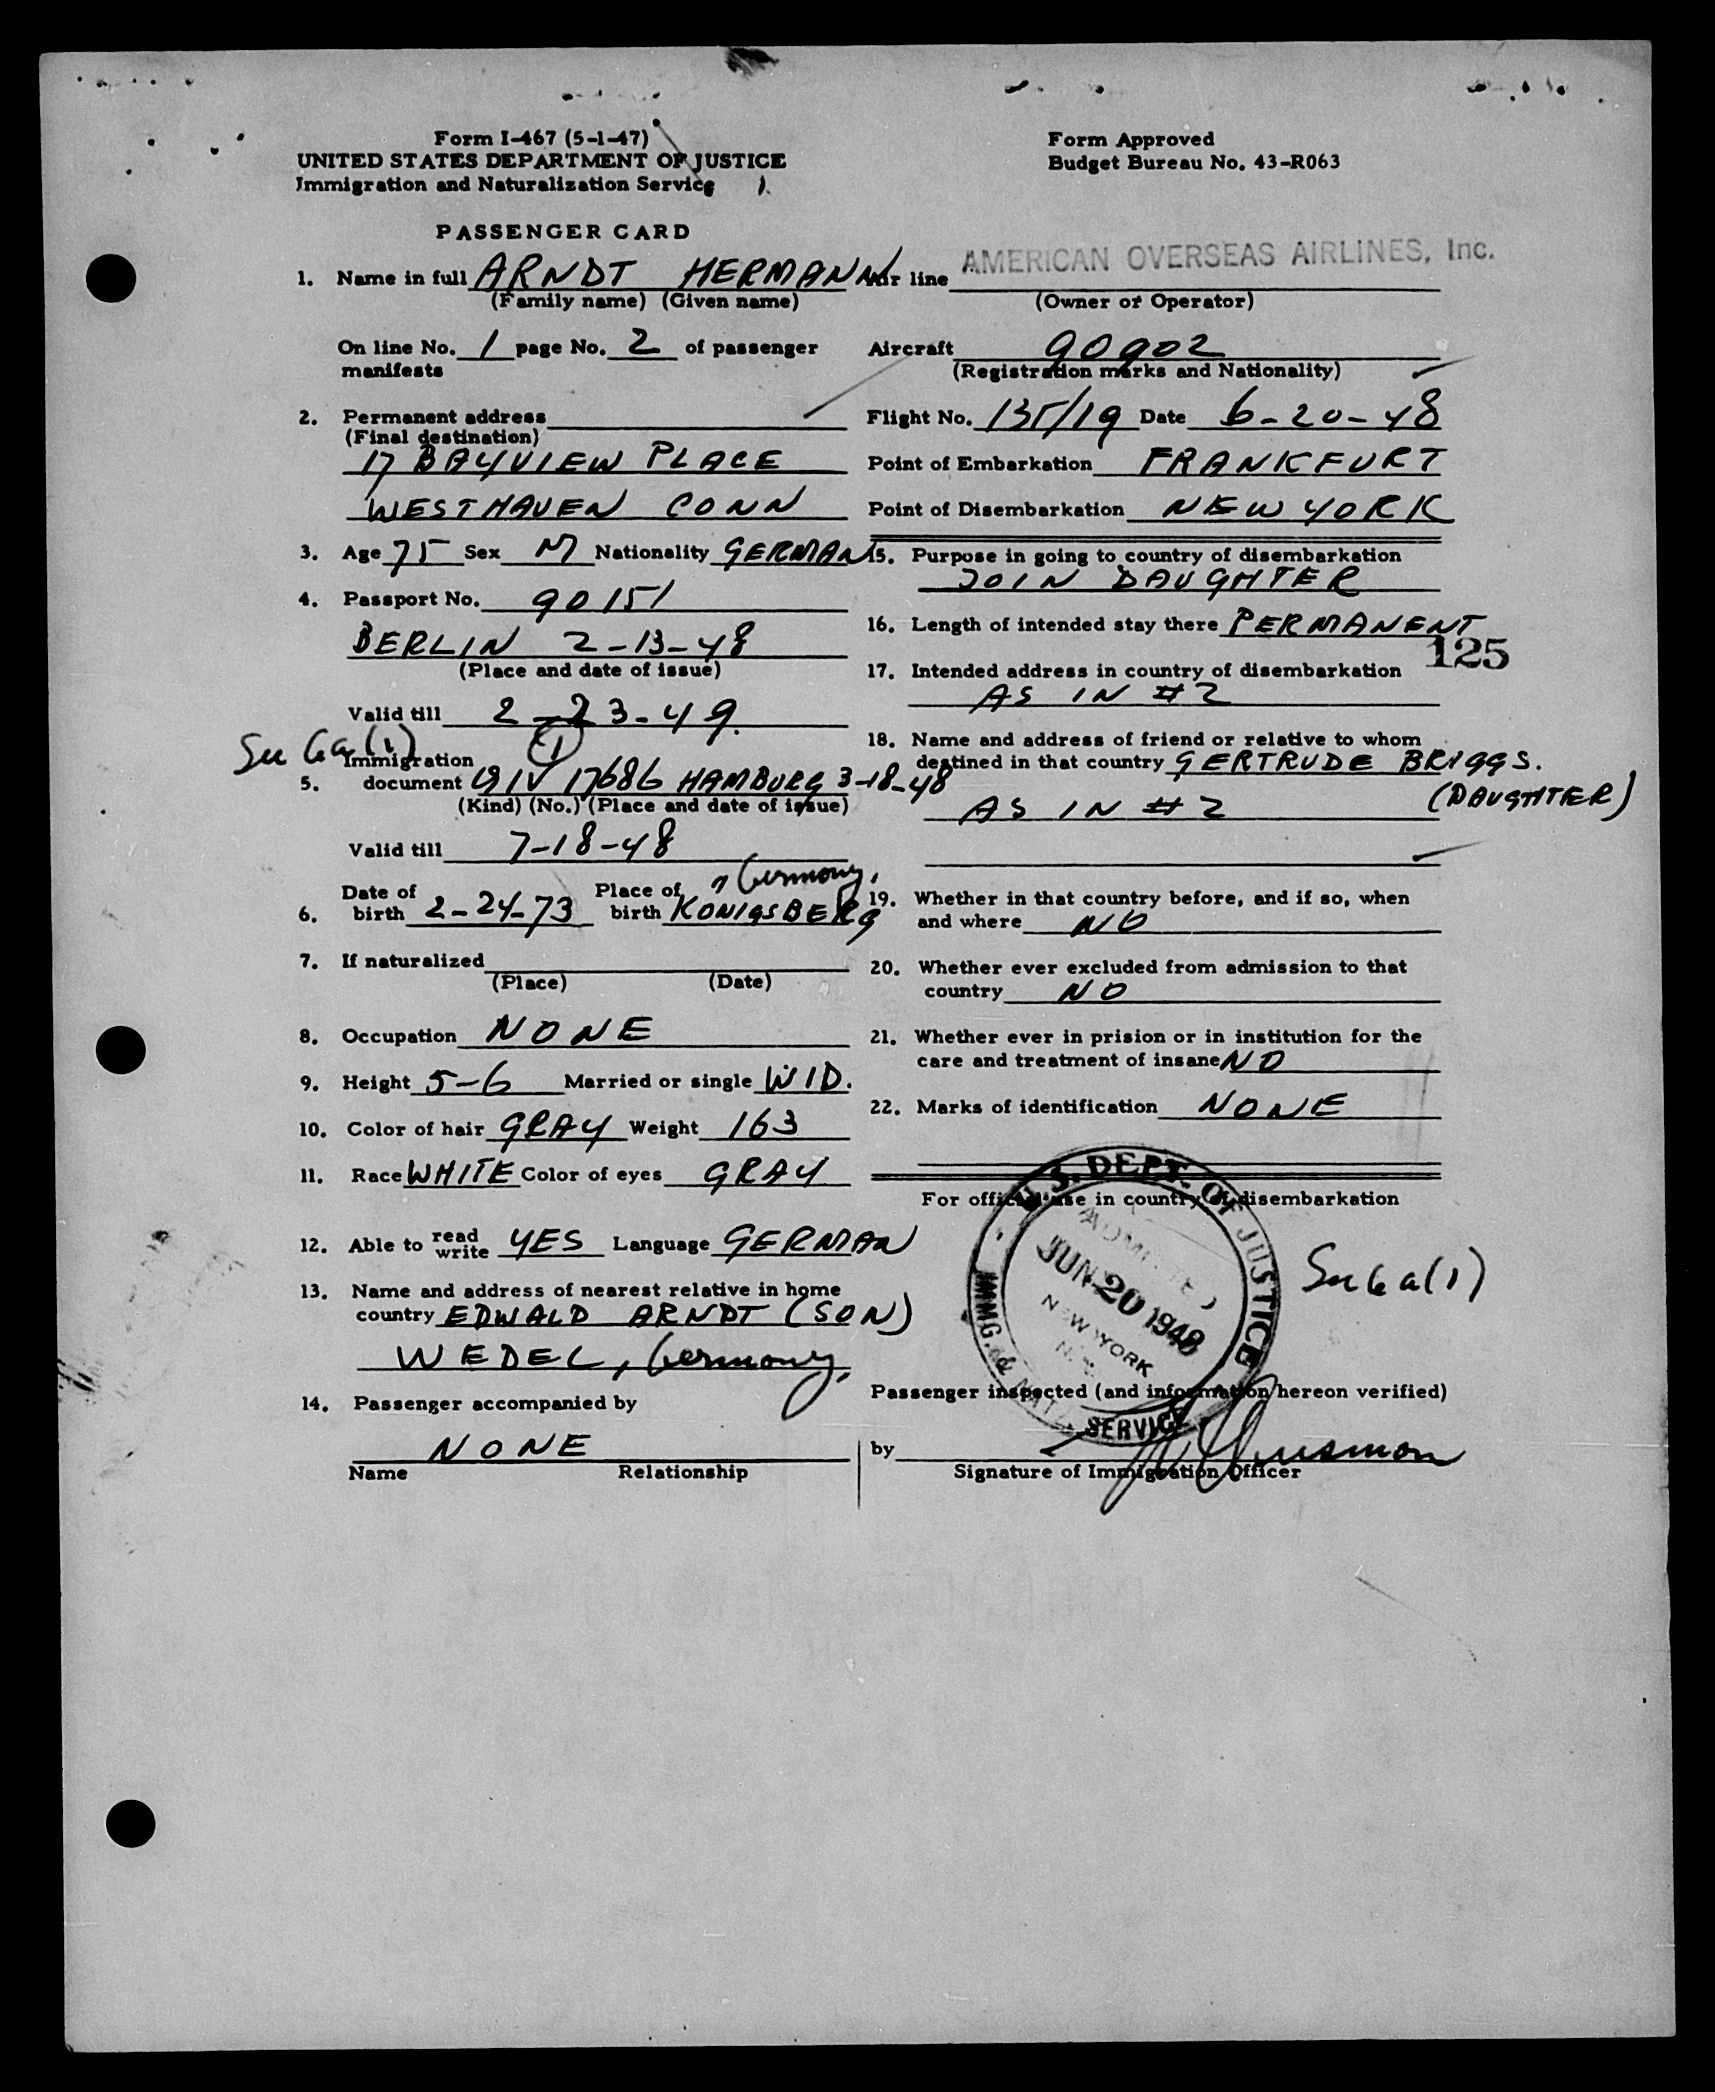 Form I-467 (5-1-47)
UNITED STATES DEPARTMENT OF JUSTICE
Immigration and Naturalization Service
Form Approved
Budget Bureau No. 43-R063
PASSENGER CARD
1. Name in full ARNDT HERMANN
(Family name) (Given name)
On line No. 1 page No. 2 of passenger
manifests
2. Permanent address
(Final destination)
17 BAYVIEW PLACE
WESTHAVEN CONN
3. Age 75 Sex M Nationality GERMAN
4. Passport No. 90151
BERLIN 2-13-48
(Place and date of issue)
Valid till 2-23-49
Sec 6a(1)
(1)
Immigration
5. document QIV 17686 HAMBURG 3-18-48
(Kind) (No.) (Place and date of issue)
Valid till 7-18-48
Date of Place of , Germany,
6. birth 2-24-73 birth KONIGSBERG
7. If naturalized
(Place) (Date)
8. Occupation NONE
9. Height 5-6 Married or single WID.
10. Color of hair GRAY Weight 163
11. Race WHITE Color of eyes GRAY
12. Able to read write YES Language GERMAN
13. Name and address of nearest relative in home
country EDWALD ARNDT (SON)
WEDEL, Germany,
14. Passenger accompanied by
NONE
Name Relationship
Air line AMERICAN OVERSEAS AIRLINES, Inc.
(Owner or Operator)
Aircraft 90902
(Registration marks and Nationality)
Flight No. 135/19 Date 6-20-48
Point of Embarkation FRANKFURT
Point of Disembarkation NEW YORK
15. Purpose in going to country of disembarkation
JOIN DAUGHTER
16. Length of intended stay there PERMANENT
125
17. Intended address in country of disembarkation
AS IN #2
18. Name and address of friend or relative to whom
destined in that country GERTRUDE BRIGGS.
(DAUGHTER)
AS IN #2
19. Whether in that country before, and if so, when
and where NO
20. Whether ever excluded from admission to that
country NO
21. Whether ever in prision or in institution for the
care and treatment of insane NO
22. Marks of identification NONE
For official use in country of disembarkation
U.S. DEPT. OF JUSTICE
IMMG. & NATZ. SERVICE
ADMITTED
JUN 20 1948
NEW YORK
N.Y.
Sec 6a(1)
Passenger inspected (and information hereon verified)
by
Signature of Immigration Officer